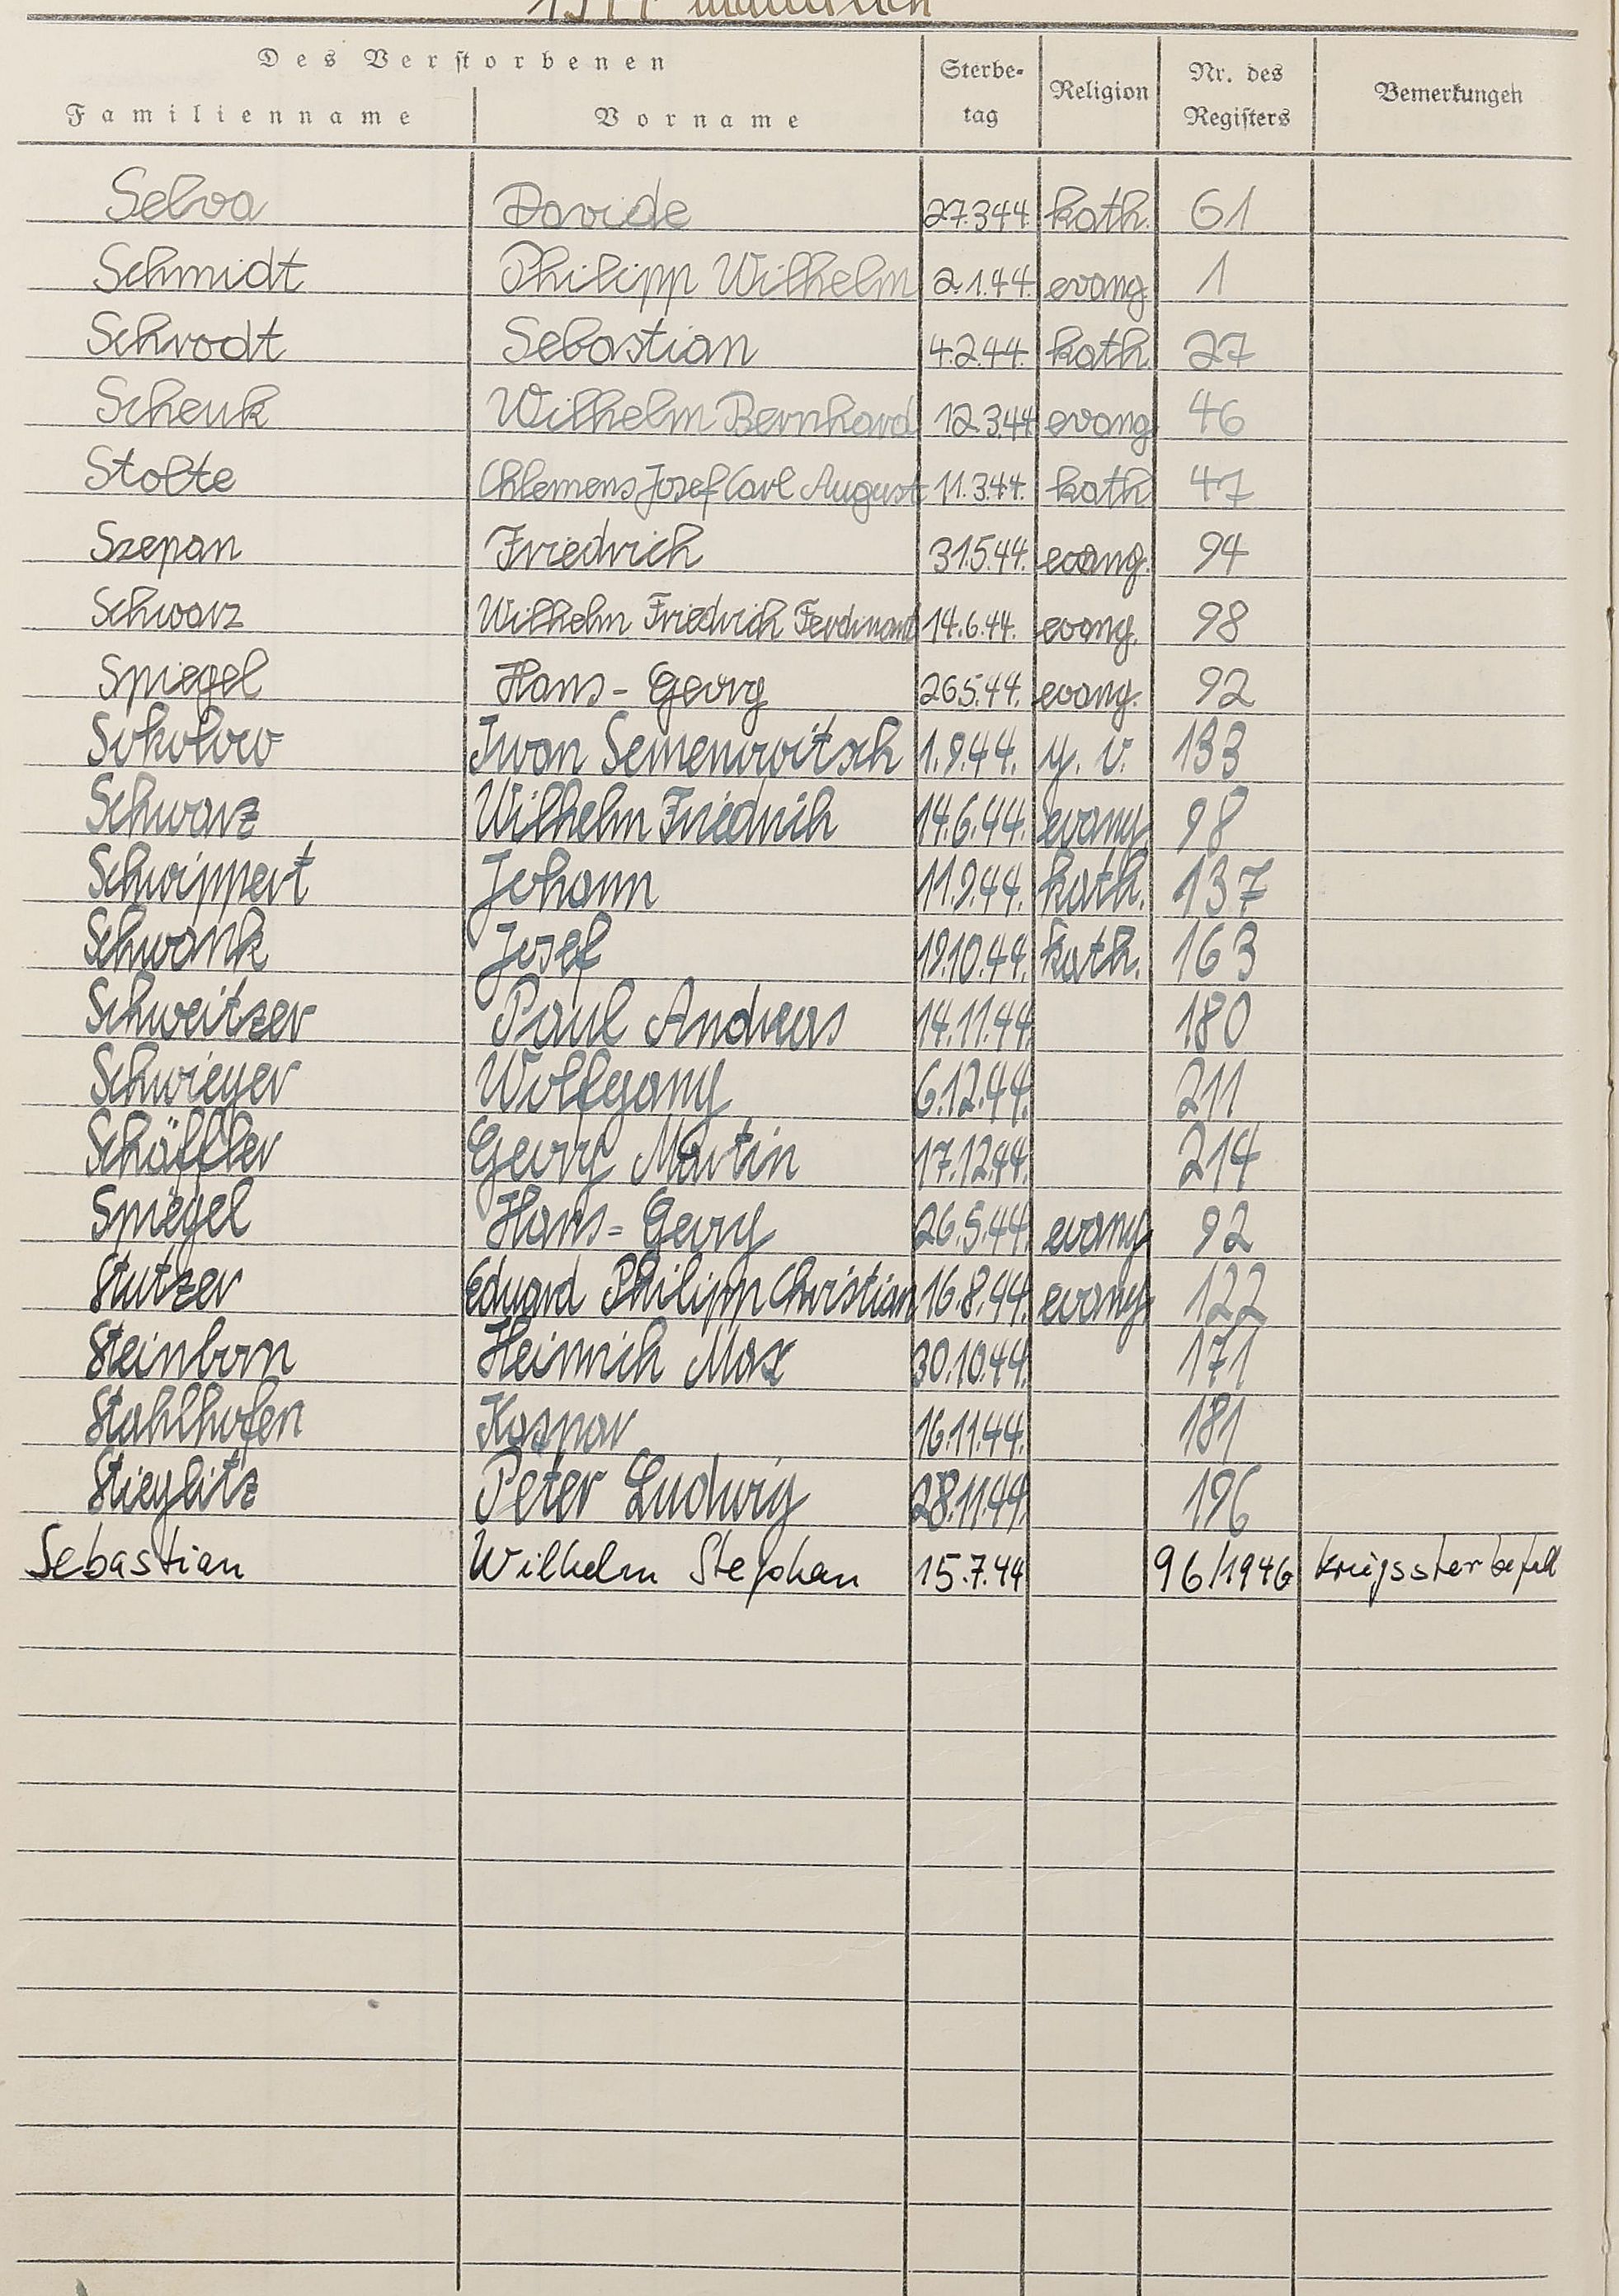 1944 männlich
Des Verstorbenen Sterbe- Religion Nr. des Bemerkungen
Familienname Vorname tag Registers
Selva Davide 27.3.44. kath. 61
Schmidt Philipp Wilhelm 2.1.44. evang. 1
Schrodt Sebastian 4.2.44. kath. 27
Schenk Wilhelm Bernhard 12.3.44 evang. 46
Stolte Chlemens Josef Carl August 11.3.44. kath. 47
Szepan Friedrich 31.5.44. evang. 94
Schwarz Wilhelm Friedrich Ferdinand 14.6.44. evang. 98
Spiegel Hans-Georg 26.5.44. evang. 92
Sokolow Iwan Semenwitsch 1.9.44. 133
Schwarz Wilhelm Friedrich 14.6.44. evang. 98
Schwippert Johann 11.9.44. kath. 137
Schwank Josef 19.10.44. kath. 163
Schweitzer Paul Andreas 14.11.44. 180
Schwieger Wolfgang 6.12.44. 211
Schäffler Georg Martin 17.12.44. 214
Spiegel Hans-Georg 26.5.44. evang. 92
Stutzer Eduard Philipp Christian 16.8.44. evang. 122
Steinborn Heinrich Max 30.10.44. 171
Stahlhofen Kaspar 16.11.44. 181
Stieglitz Peter Ludwig 28.11.44. 196
Sebastian Wilhelm Stephan 15.7.44 96/1946 Kriegssterbefall